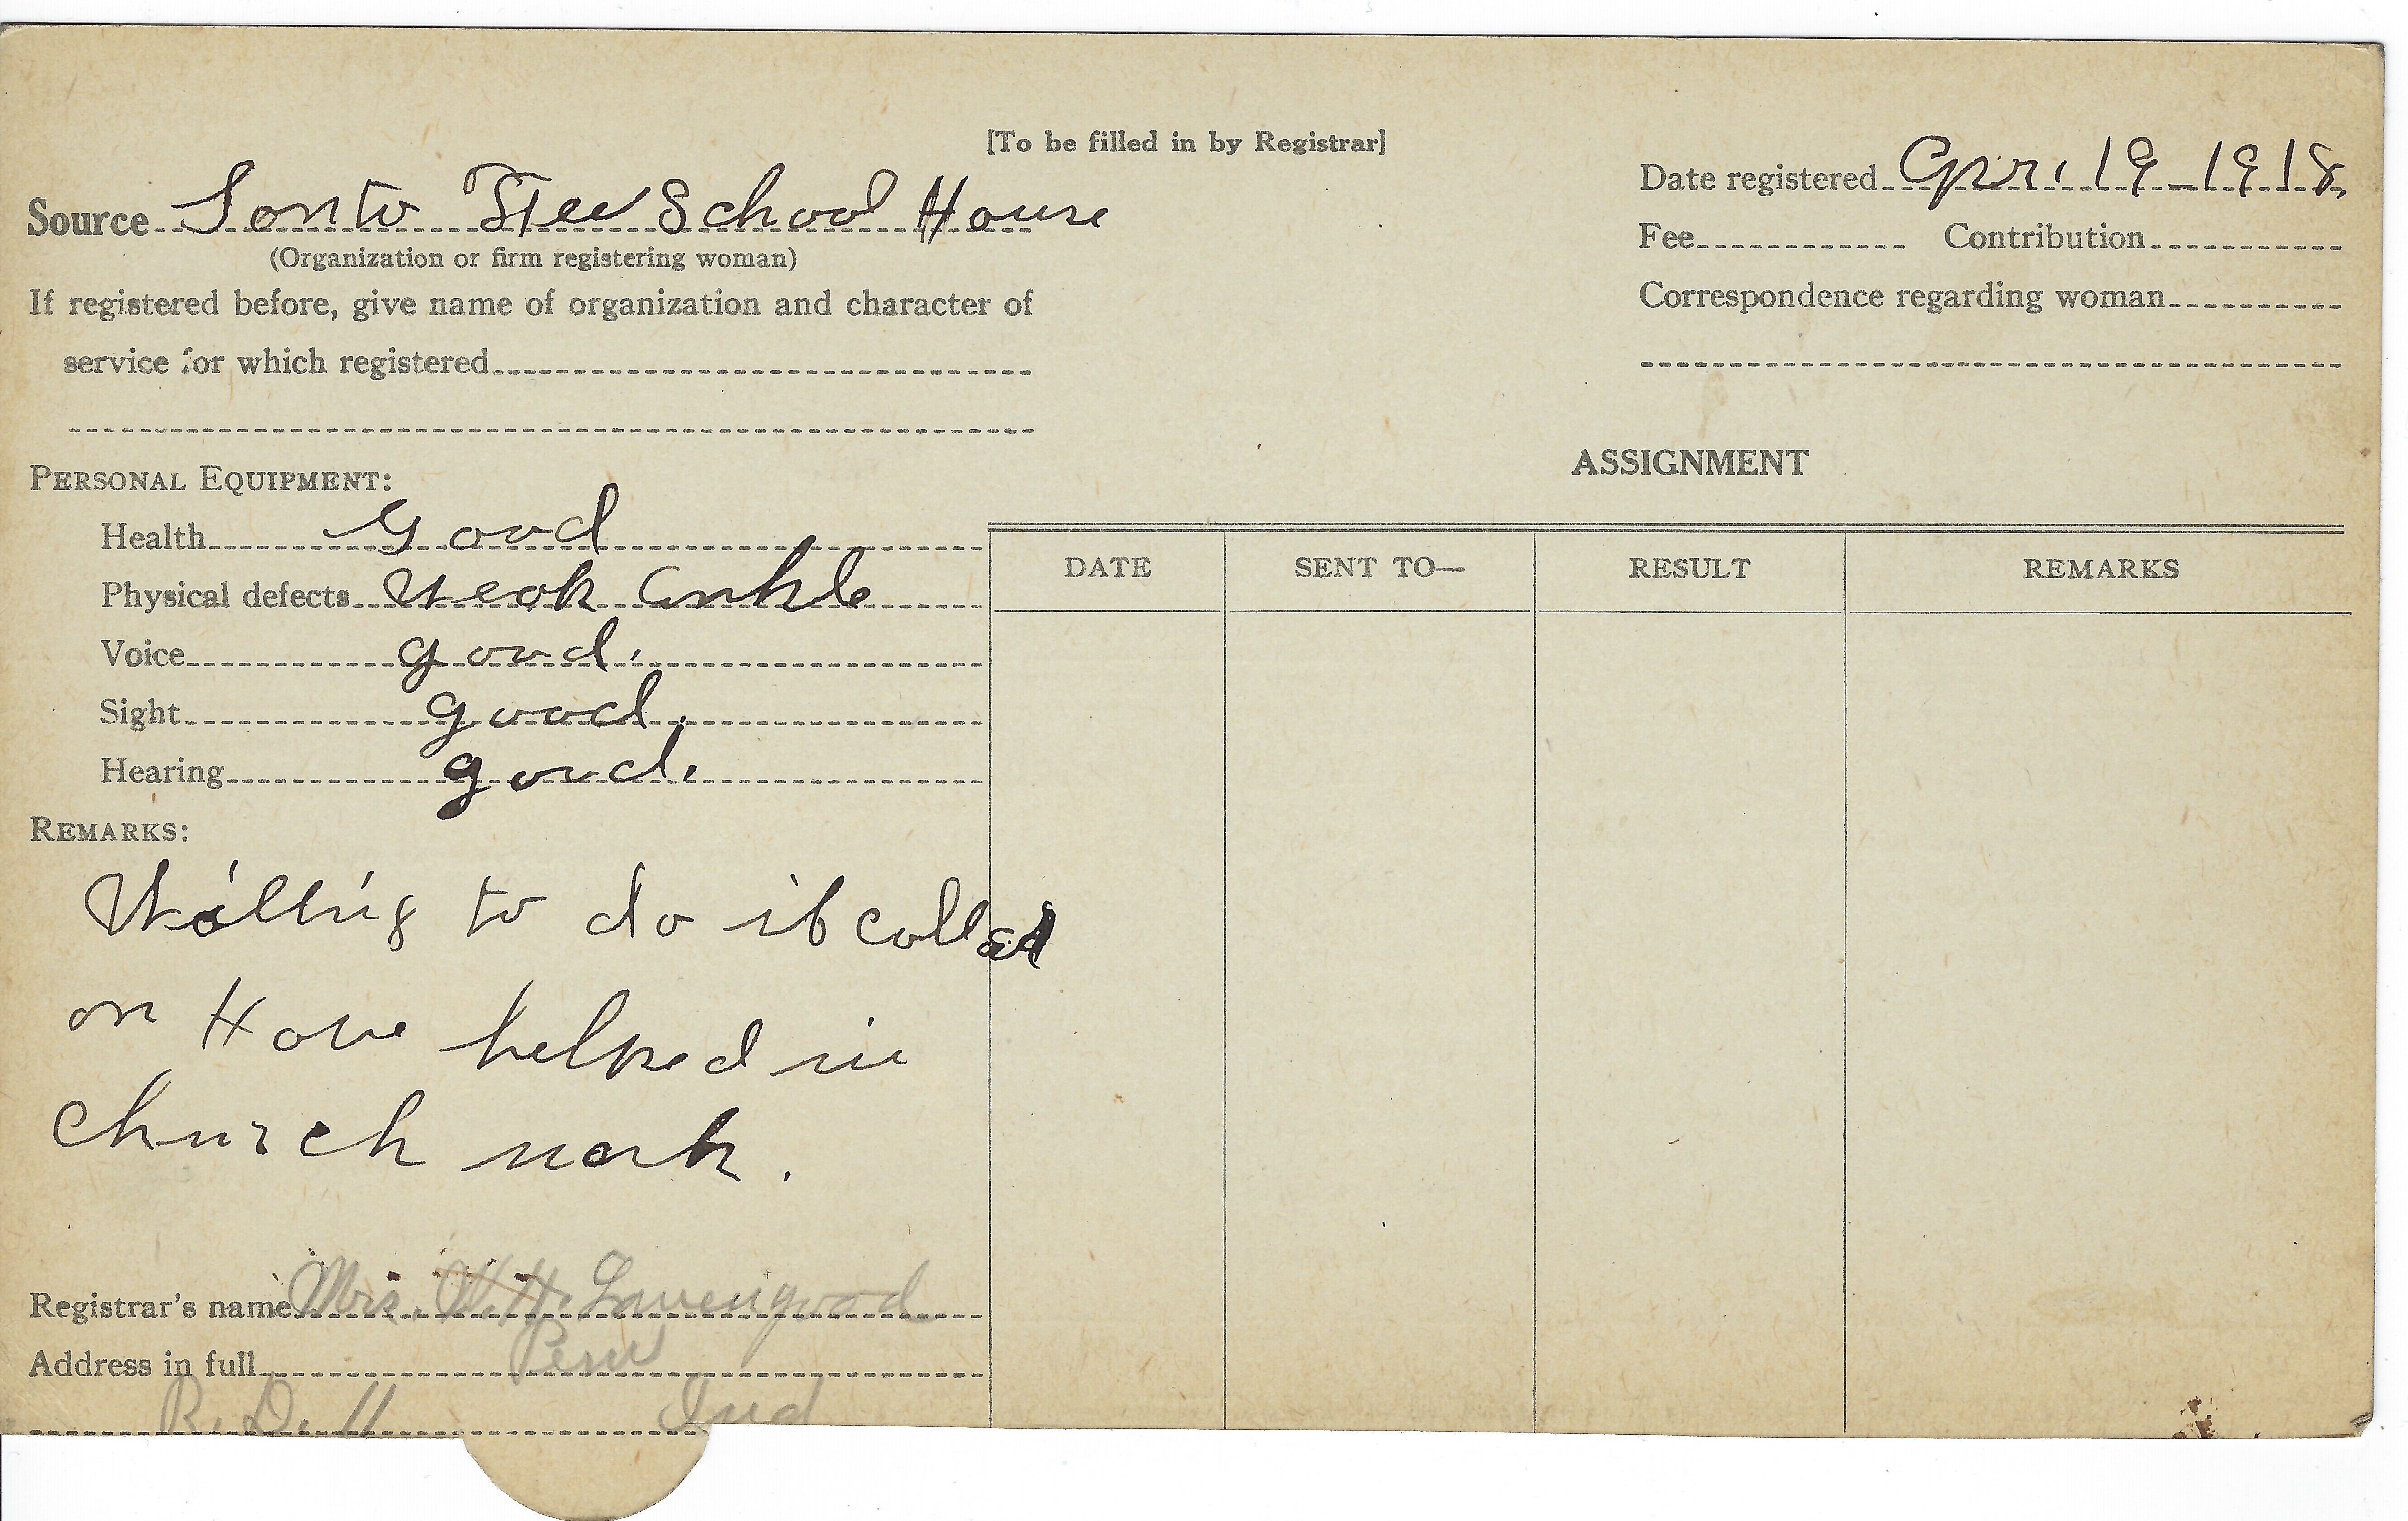 [To be filled in by Registrar]
Source Santa Fee School House
(Organization or firm registering woman)
If registered before, give name of organization and character of
service for which registered
Date registered Apr. 19-1918.
Fee Contribution
Correspondence regarding woman
PERSONAL EQUIPMENT:
Health Good
Physical defects Weak Ankle
Voice good.
Sight good.
Hearing good.
REMARKS:
Willing to do if called
on Have helped in
church work.
Registrar's name Mrs. W. H. Lavengood
Address in full Peru
R. D. 11 Ind
ASSIGNMENT
DATE SENT TO— RESULT REMARKS